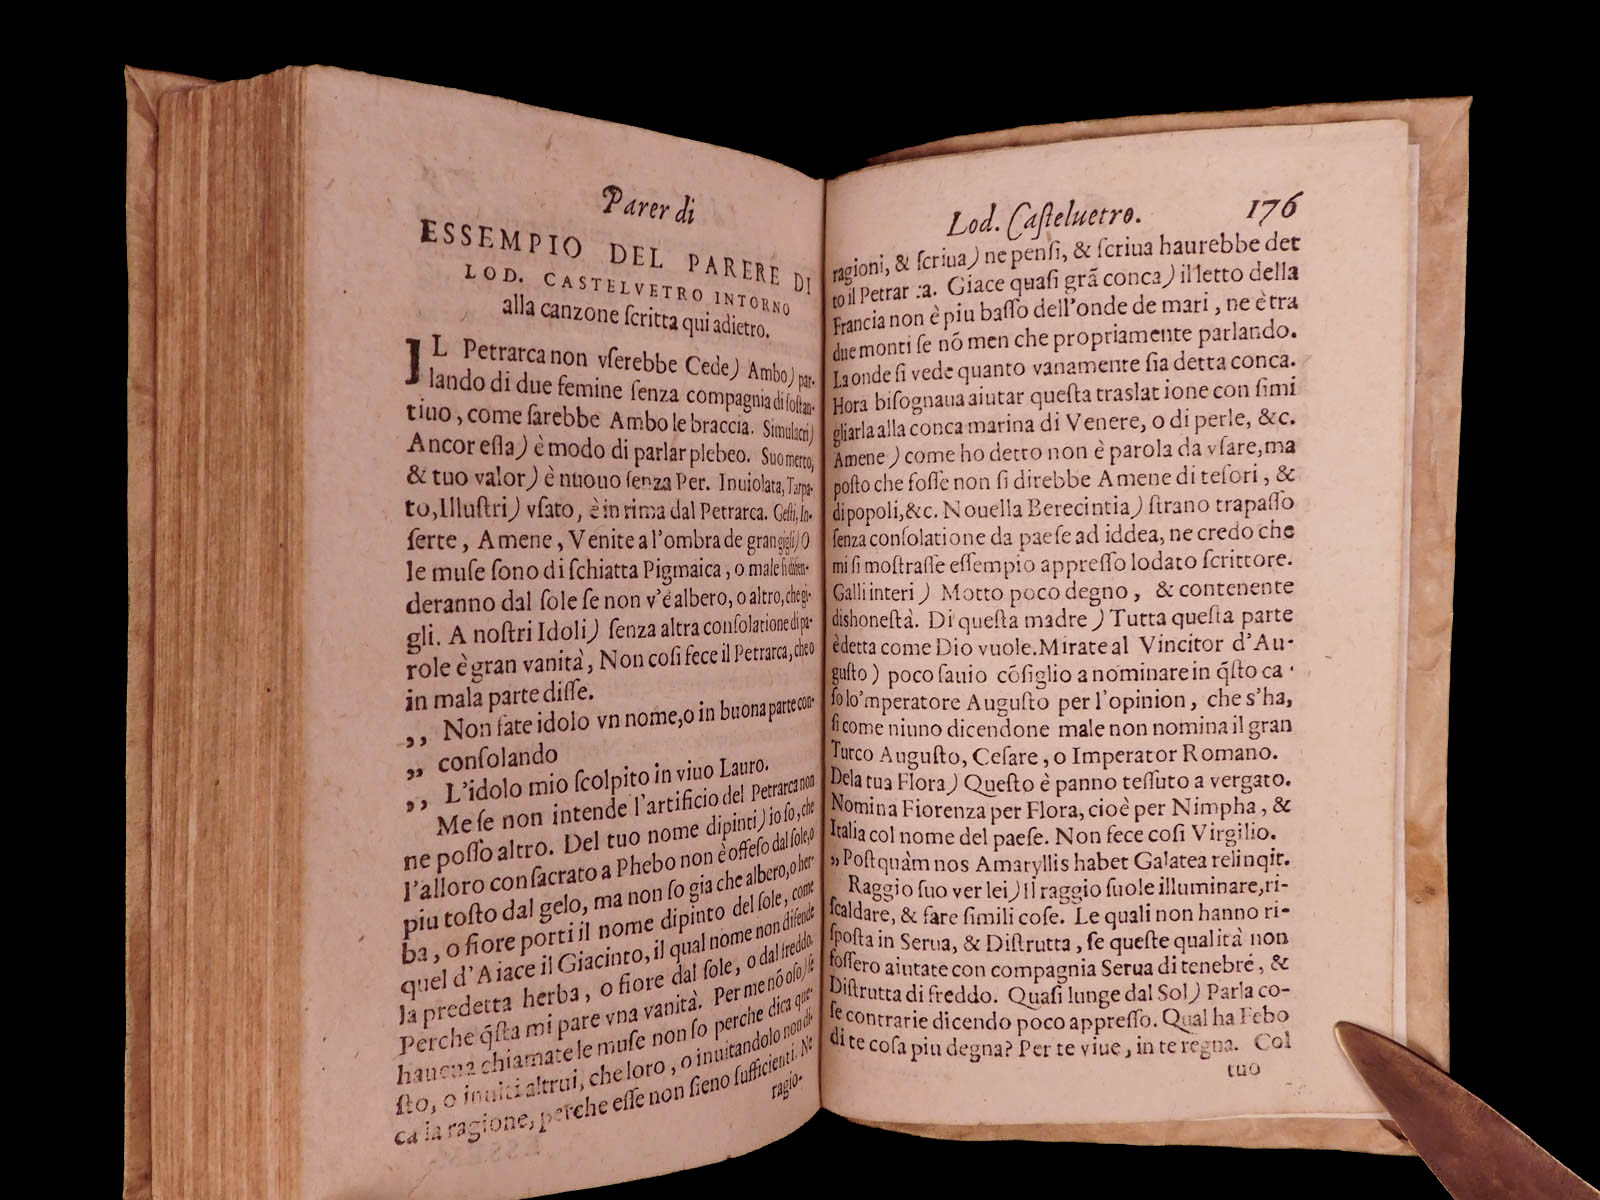 Parer di
ESSEMPIO DEL PARERE DI
LOD. CASTELVETRO INTORNO
alla canzone ſcritta qui adietro.
IL Petrarca non vſerebbe Cede) Ambo) par-
lando di due femine ſenza compagnia di ſoſtan-
tiuo, come ſarebbe Ambo le braccia. Simulacri)
Ancor eſla) è modo di parlar plebeo. Suo merto,
& tuo valor) è nuouo ſenza Per. Inuiolata, Tarpa-
to, Illuſtri) vſato, è in rima dal Petrarca. Geſti, In-
ſerte, Amene, Venite a l'ombra de gran gigli) O
le muſe ſono di ſchiatta Pigmaica, o male ſi difen-
deranno dal ſole ſe non v'è albero, o altro, che gi-
gli. A noſtri Idoli) ſenza altra conſolatione di pa-
role è gran vanità, Non coſi fece il Petrarca, che o
in mala parte diſſe.
,, Non fate idolo vn nome, o in buona parte con-
,, conſolando
,, L'idolo mio ſcolpito in viuo Lauro.
Me ſe non intende l'artificio del Petrarca non
ne poſſo altro. Del tuo nome dipinti) io ſo, che
l'alloro conſacrato a Phebo non è offeſo dal ſole, o
piu toſto dal gelo, ma non ſo gia che albero, o her-
ba, o fiore porti il nome dipinto del ſole, come
quel d'Aiace il Giacinto, il qual nome non difende
la predetta herba, o fiore dal ſole, o dal freddo.
Perche q̃ſta mi pare vna vanità. Per me nō oſo) ſe
haueua chiamate le muſe non ſo perche dica que-
ſto, o inuiti altrui, che loro, o inuitandolo non di-
ca la ragione, perche eſſe non ſieno ſufficienti. Ne
ragio-
Lod. Caſteluetro. 176
ragioni, & ſcriua) ne penſi, & ſcriua haurebbe det
to il Petrarca. Giace quaſi grā conca) il letto della
Francia non è piu baſſo dell'onde de mari, ne è tra
due monti ſe nō men che propriamente parlando.
La onde ſi vede quanto vanamente ſia detta conca.
Hora biſognaua aiutar queſta traslatione con ſimi
gliarla alla conca marina di Venere, o di perle, &c.
Amene) come ho detto non è parola da vſare, ma
poſto che foſſe non ſi direbbe Amene di teſori, &
di popoli, &c. Nouella Berecintia) ſtrano trapaſſo
ſenza conſolatione da paeſe ad iddea, ne credo che
mi ſi moſtraſſe eſſempio appreſſo lodato ſcrittore.
Galli interi) Motto poco degno, & contenente
dishoneſtà. Di queſta madre) Tutta queſta parte
è detta come Dio vuole. Mirate al Vincitor d'Au-
guſto) poco ſauio cōſiglio a nominare in q̃ſto ca-
ſo lo'mperatore Auguſto per l'opinion, che s'ha,
ſi come niuno dicendone male non nomina il gran
Turco Auguſto, Ceſare, o Imperator Romano.
Dela tua Flora) Queſto è panno teſſuto a vergato.
Nomina Fiorenza per Flora, cioè per Nimpha, &
Italia col nome del paeſe. Non fece coſi Virgilio.
,, Poſtquàm nos Amaryllis habet Galatea relinqit.
Raggio ſuo ver lei) Il raggio ſuole illuminare, ri-
ſcaldare, & fare ſimili coſe. Le quali non hanno ri-
ſpoſta in Serua, & Diſtrutta, ſe queſte qualità non
foſſero aiutate con compagnia Serua di tenebre, &
Diſtrutta di freddo. Quaſi lunge dal Sol) Parla co-
ſe contrarie dicendo poco appreſſo. Qual ha Febo
di te coſa piu degna? Per te viue, in te regna. Col
tuo